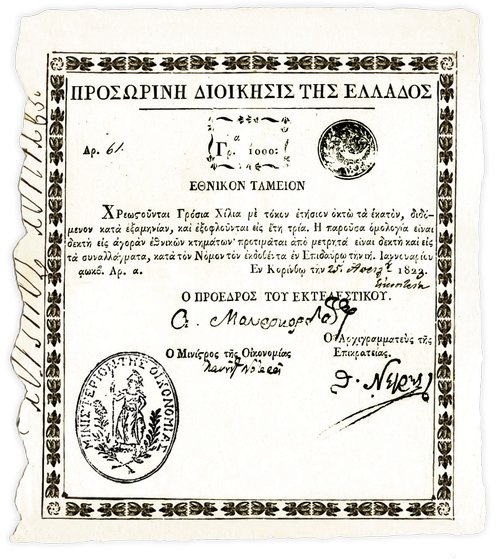 ΠΡΟΣΩΡΙΝΗ ΔΙΟΙΚΗΣΙΣ ΤΗΣ ΕΛΛΑΔΟΣ
Αρ. 61.
α
Γρ. 1000:
ΕΘΝΙΚΟΝ ΤΑΜΕΙΟΝ
Χρεωστοῦνται Γρόσια Χίλια μὲ τόκον ἐτήσιον ὀκτὼ τὰ ἑκατὸν, διδό-
μενον κατὰ ἑξαμηνίαν, καὶ ἐξοφλοῦνται εἰς ἔτη τρία. Ἡ παροῦσα ὁμολογία εἶναι
δεκτὴ εἰς ἀγορὰν ἐθνικῶν κτημάτων· προτιμᾶται ἀπὸ μετρητὰ εἶναι δεκτὴ καὶ εἰς
τὰ συναλλάγματα, κατὰ τὸν Νόμον τὸν ἐκδοθέντα ἐν Ἐπιδαύρῳ τὴν ιη. Ἰαννουαρίου
αωκβ. Αρ. α. Εν Κορίνθῳ τὴν 25 1822
Ο ΠΡΟΕΔΡΟΣ ΤΟΥ ΕΚΤΕΛΕΣΤΙΚΟΥ.
Α. Μαυροκορδάτος
Ο Ἀρχιγραμματεὺς τῆς
Ο Μινίστρος τῆς Οἰκονομίας Επικρατείας.
Θ. Νέγρης
ΜΙΝΙΣΤΕΡΙΟΝ ΤΗΣ ΟΙΚΟΝΟΜΙΑΣ